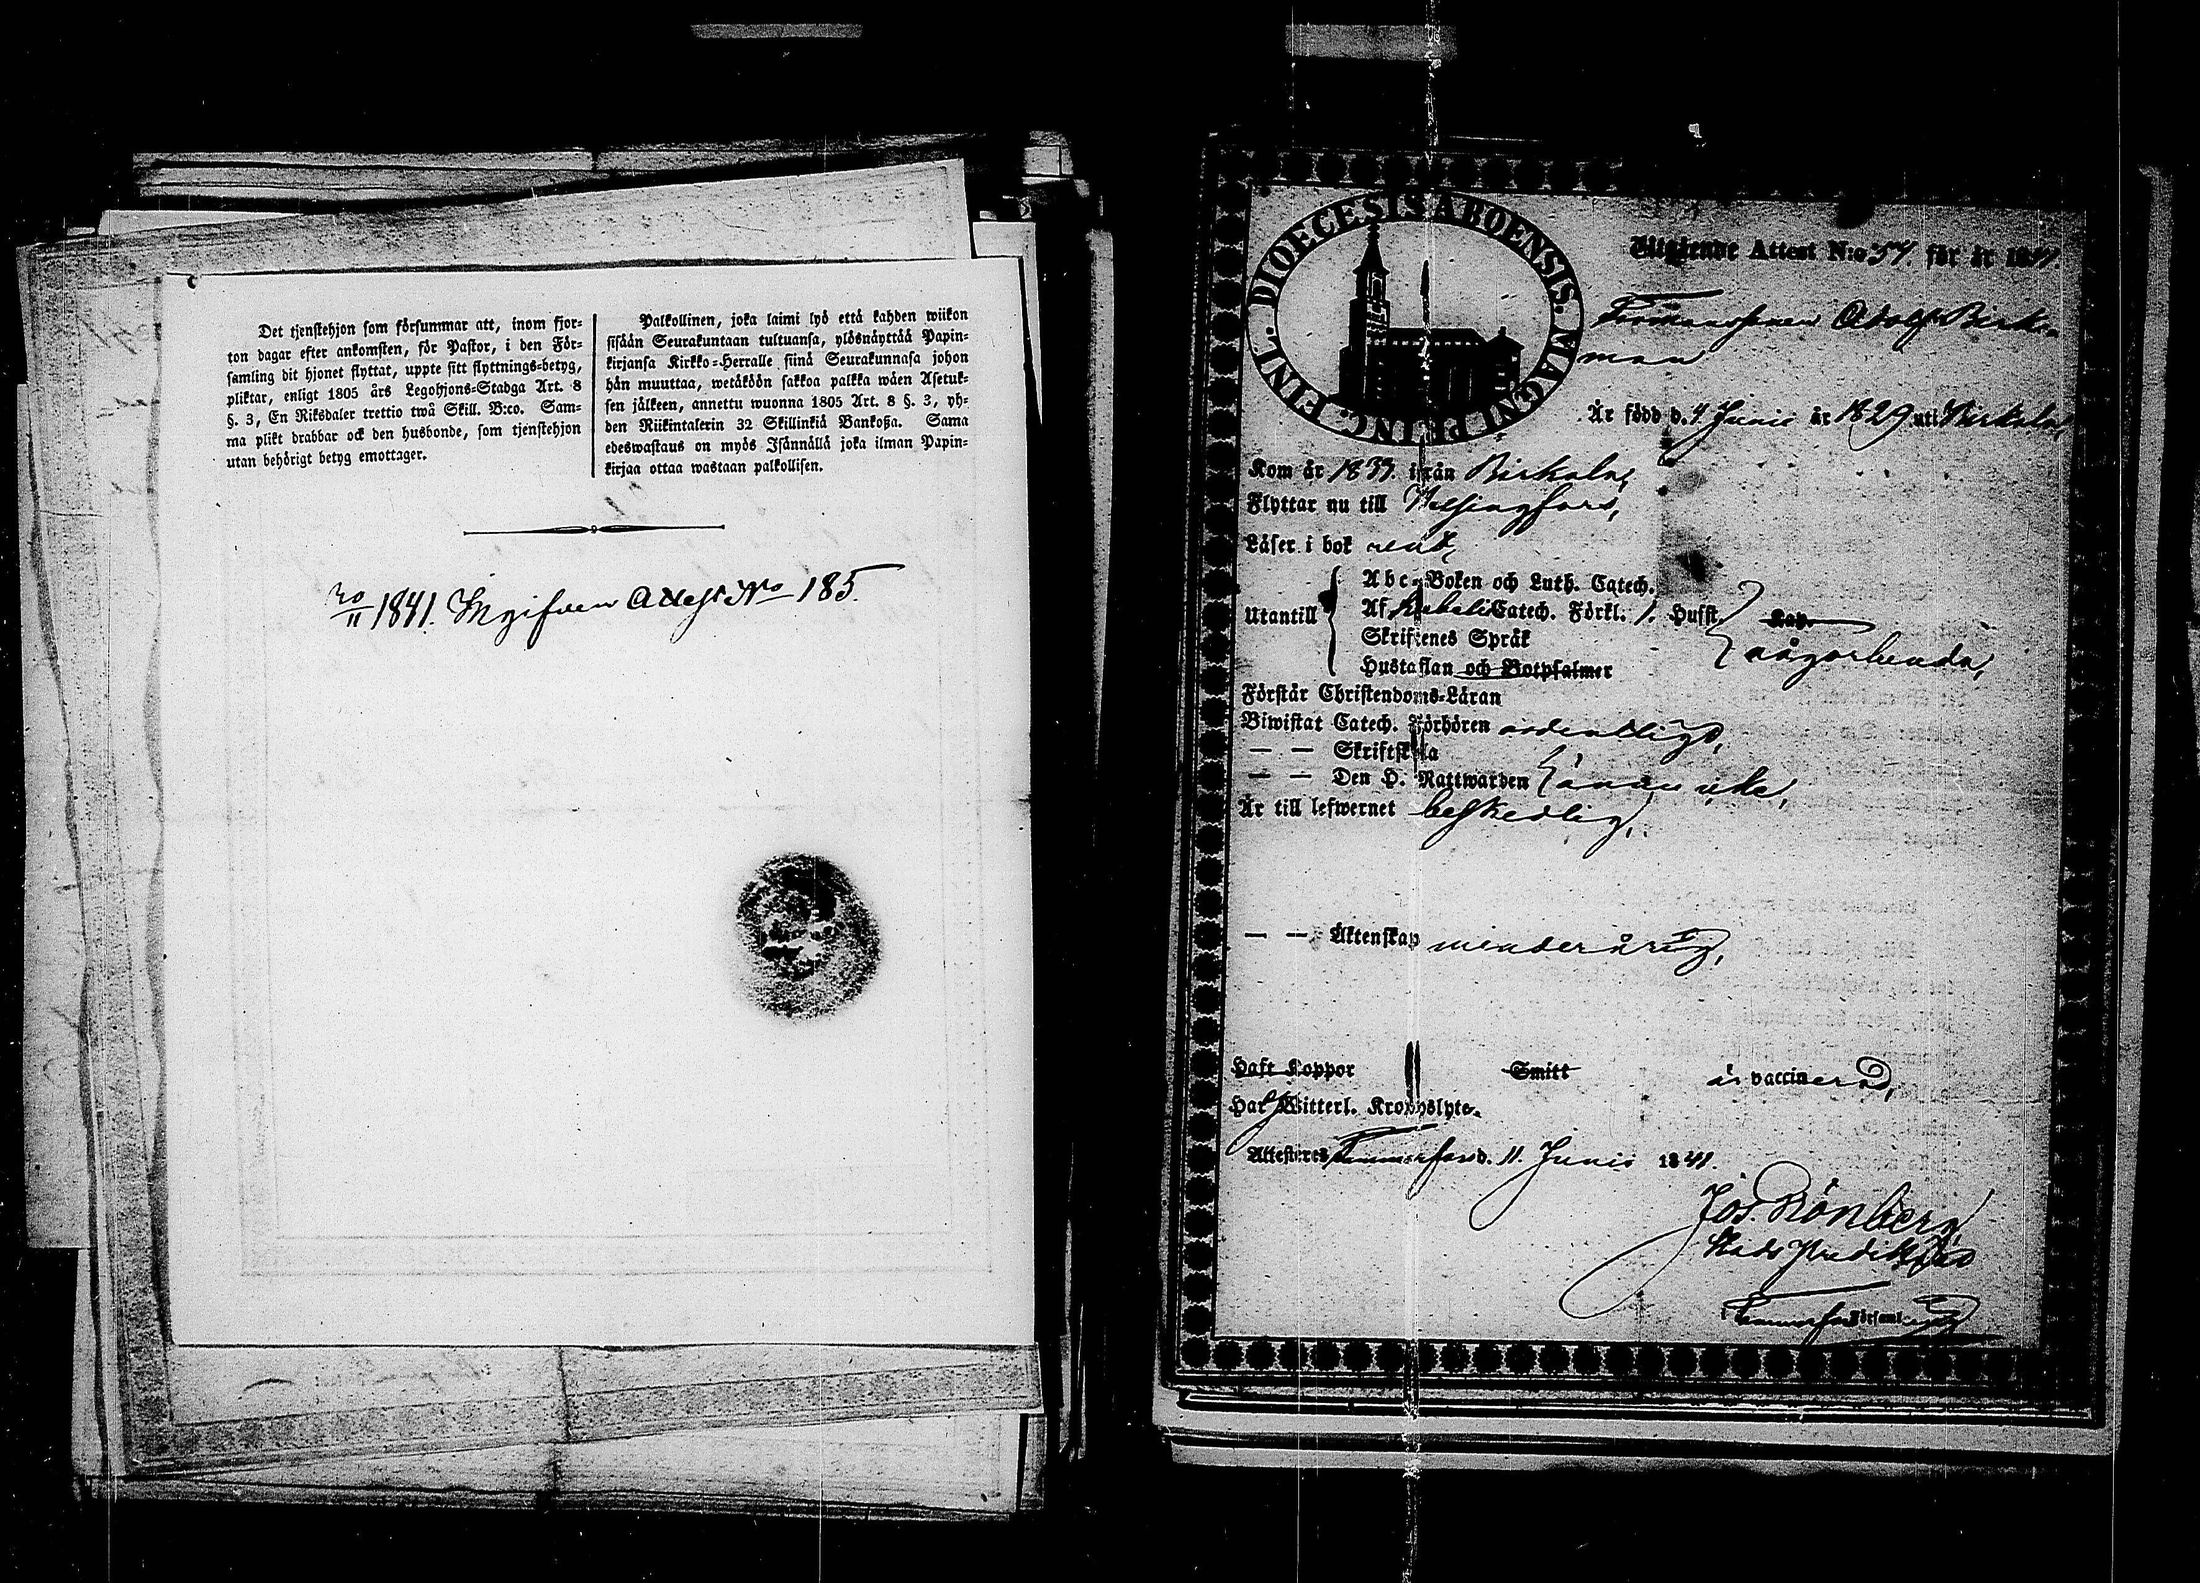 Det tjenstehjon som försummar att, inom fjor-
ton dagar efter ankomsten, för Pastor, i den För-
samling dit hjonet flyttat, uppte sitt flyttnings-betyg,
pliktar, enligt 1805 års Legohjons-Stadga Art. 8
§. 3, En Riksdaler trettio twå Skill. B:co. Sam-
ma plikt drabbar ock den husbonde, som tjenstehjon
utan behörigt betyg emottager.
Palkollinen, joka laimi lyö että kahden wiikon
sisään Seurakuntaan tultuansa, ylösnäyttää Papin-
kirjansa Kirkko-Herralle siinä Seurakunnasa johon
hän muuttaa, wetäköön sakkoa palkka wäen Asetuk-
sen jälkeen, annettu wuonna 1805 Art. 8 §. 3, yh-
den Riikintalerin 32 Skillinkiä Bankoßa. Sama
edeswastaus on myös Isännällä joka ilman Papin-
kirjaa ottaa wastaan palkollisen.
20/11 1841. Ingifven Attest No 185.
FINL. DIOECESIS ABOENSIS. MAGNI PRINC.
Utgående Attest N:o 57. för år 1841.
Adolf Birk-
man
Är född d. 4 Junii år 1829 uti Birkala,
Kom år 1833. ifrån Birkala,
Flyttar nu till Helsingfors,
Läser i bok rent,
Utantill
Abc-Boken och Luth. Catech.
Af Catech. Förkl. 1. Hufst. Kap.
Skriftenes Språk
Hustaflan och Botpsalmer
någorlunda,
Förstår Christendoms-Läran
Biwistat Catech. Förhören ordentligt,
— — Skriftskola
— — Den H. Nattwarden ännu icke,
Är till lefwernet beskedlig,
— — Äktenskap minderårig,
Haft Koppor Smitt är vaccinerad,
Har Witterl. Kroppslyte.
Attesteres Tammerfors d. 11. Junii 1841.
Jos. Rönberg
Stads Predikant
Tammerfors Församling